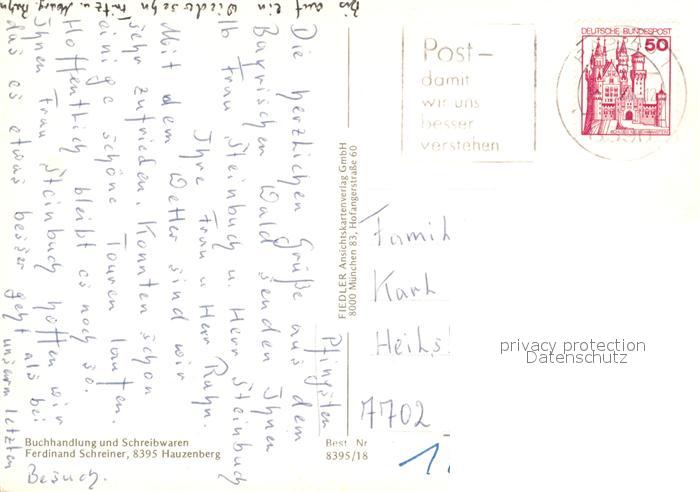 Pfingsten
Die herzlichen Grüße aus dem
Bayrischen Wald senden Ihnen
lb Frau Steinbuch u. Herr Steinbuch
Ihre Frau u Herr Rahn.
Mit dem Wetter sind wir
sehr zufrieden. Konnten schon
einige schöne Touren laufen.
Hoffentlich bleibt es noch so.
Ihnen Frau Steinbuch hoffen wir
das es etwas besser geht als bei
unserm letzten
Besuch.
Bis auf ein Wiedersehn Fritz u. Rahn
FIEDLER Ansichtskartenverlag GmbH
8000 München 83, Hofangerstraße 60
Buchhandlung und Schreibwaren
Ferdinand Schreiner, 8395 Hauzenberg
Best. Nr
8395/18
Post-
damit
wir uns
besser
verstehen
DEUTSCHE BUNDESPOST
50
Famil
Karl
Heihs
7702
privacy protection
Datenschutz